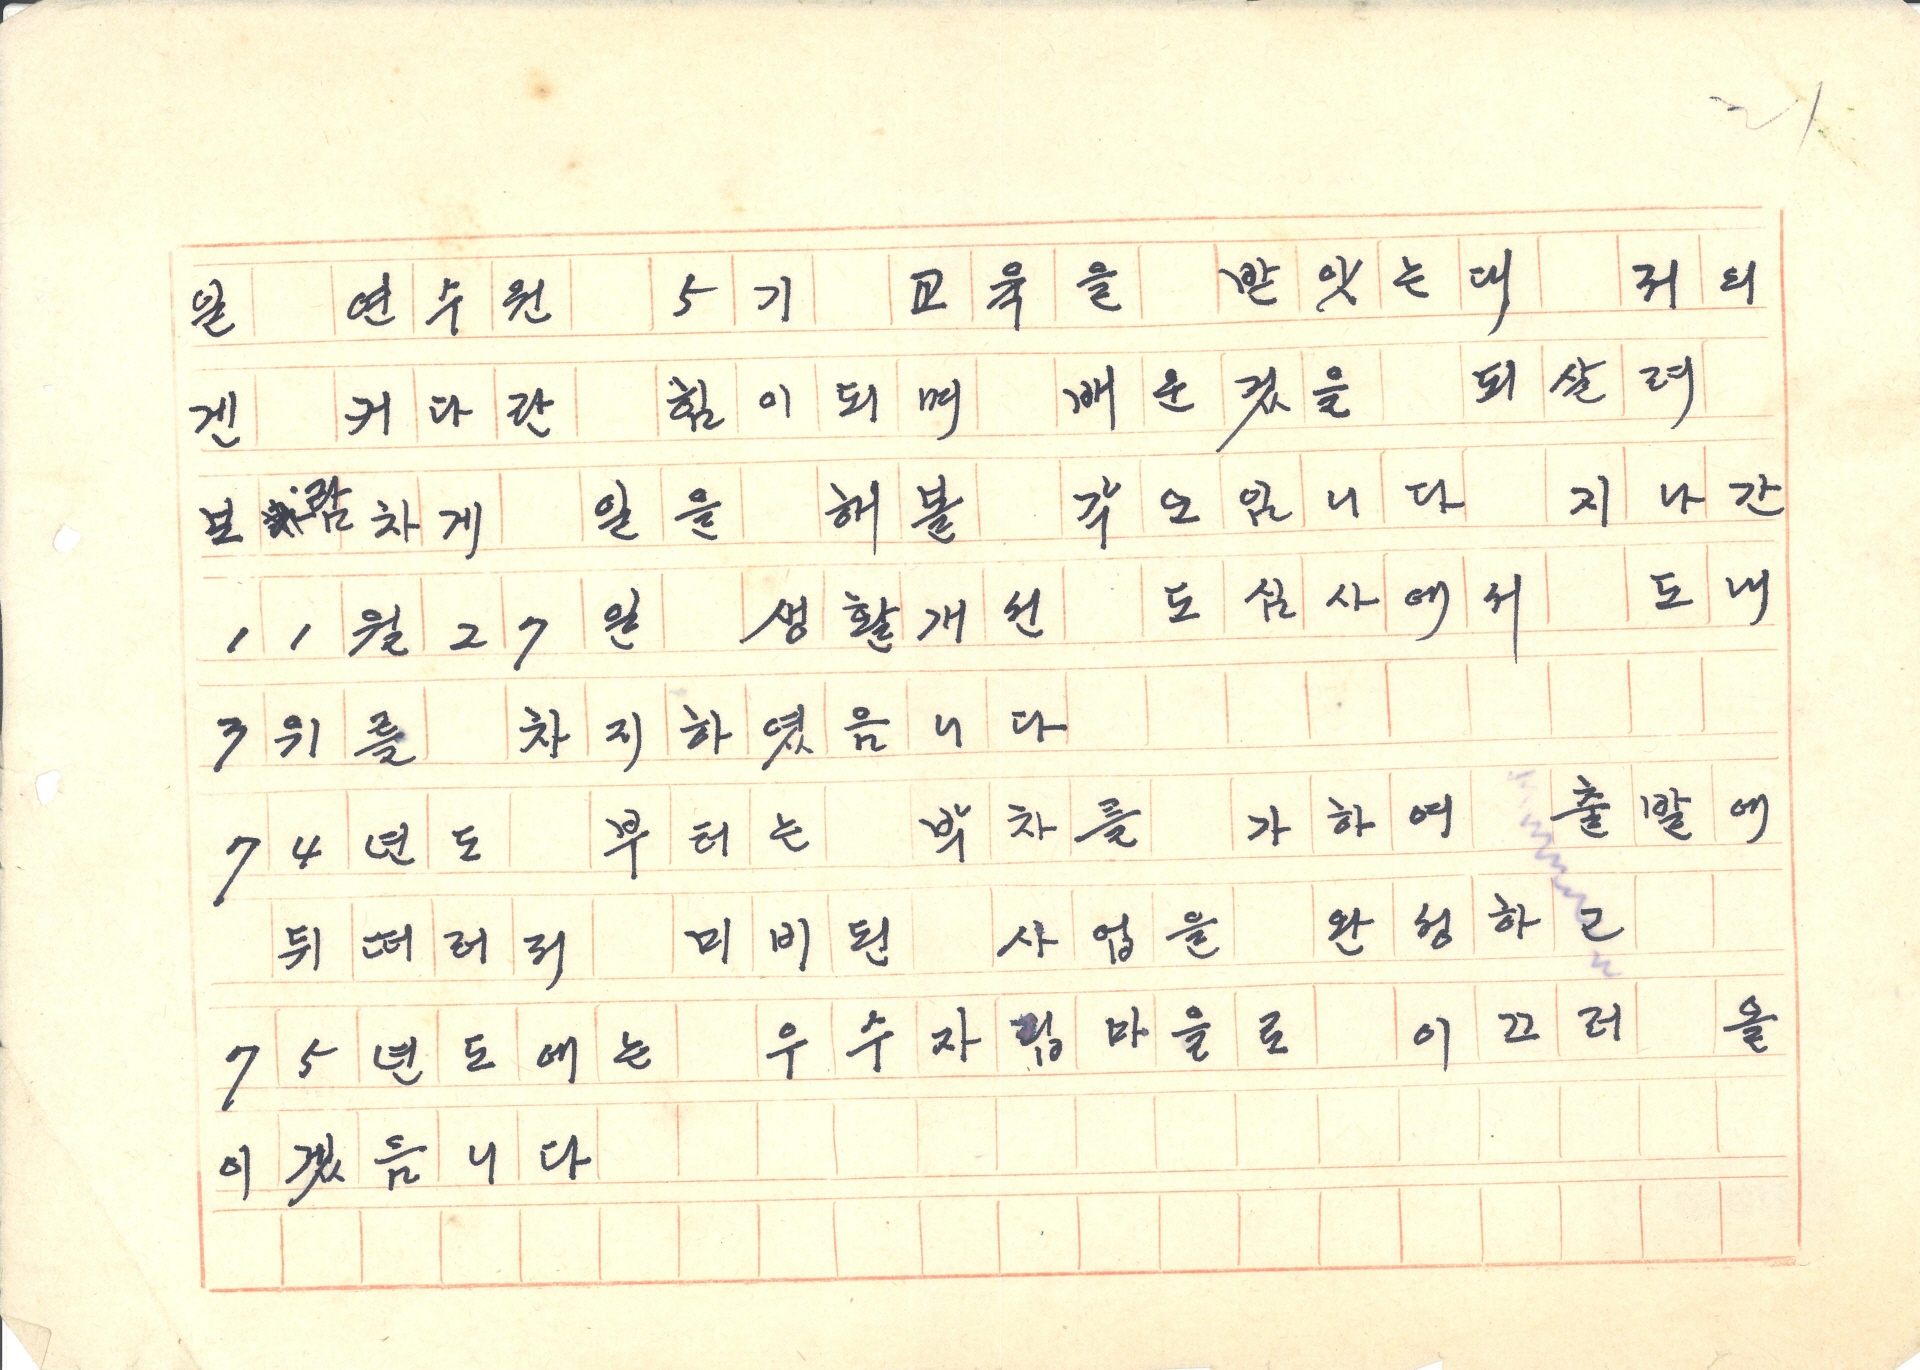 21
일 연수원 5기 교육을 받앗는대 저의
겐 커다란 힘이되며 배운겄을 되살려
보람차게 일을 해볼 각오임니다 지나간
11월27일 생활개선 도심사에서 도내
3위를 차지하였음니다
74년도 부터는 박차를 가하여 출발에
뒤떠러저 미비된 사업을 완성하고
75년도에는 우수자립마을로 이끄러 올
이겠음니다